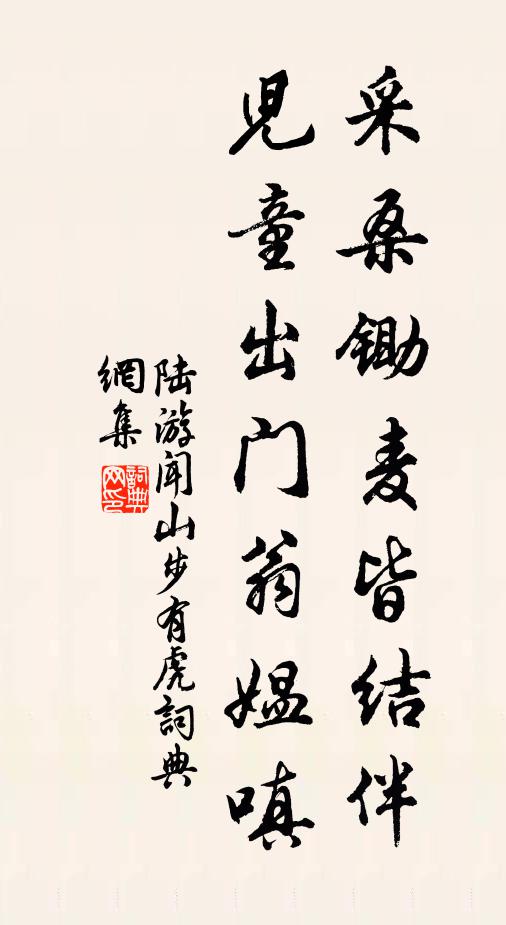 采桑锄麦皆结伴
児童出门翁媪嗔
陆游闻山步有虎词典
網集
詞典
网印